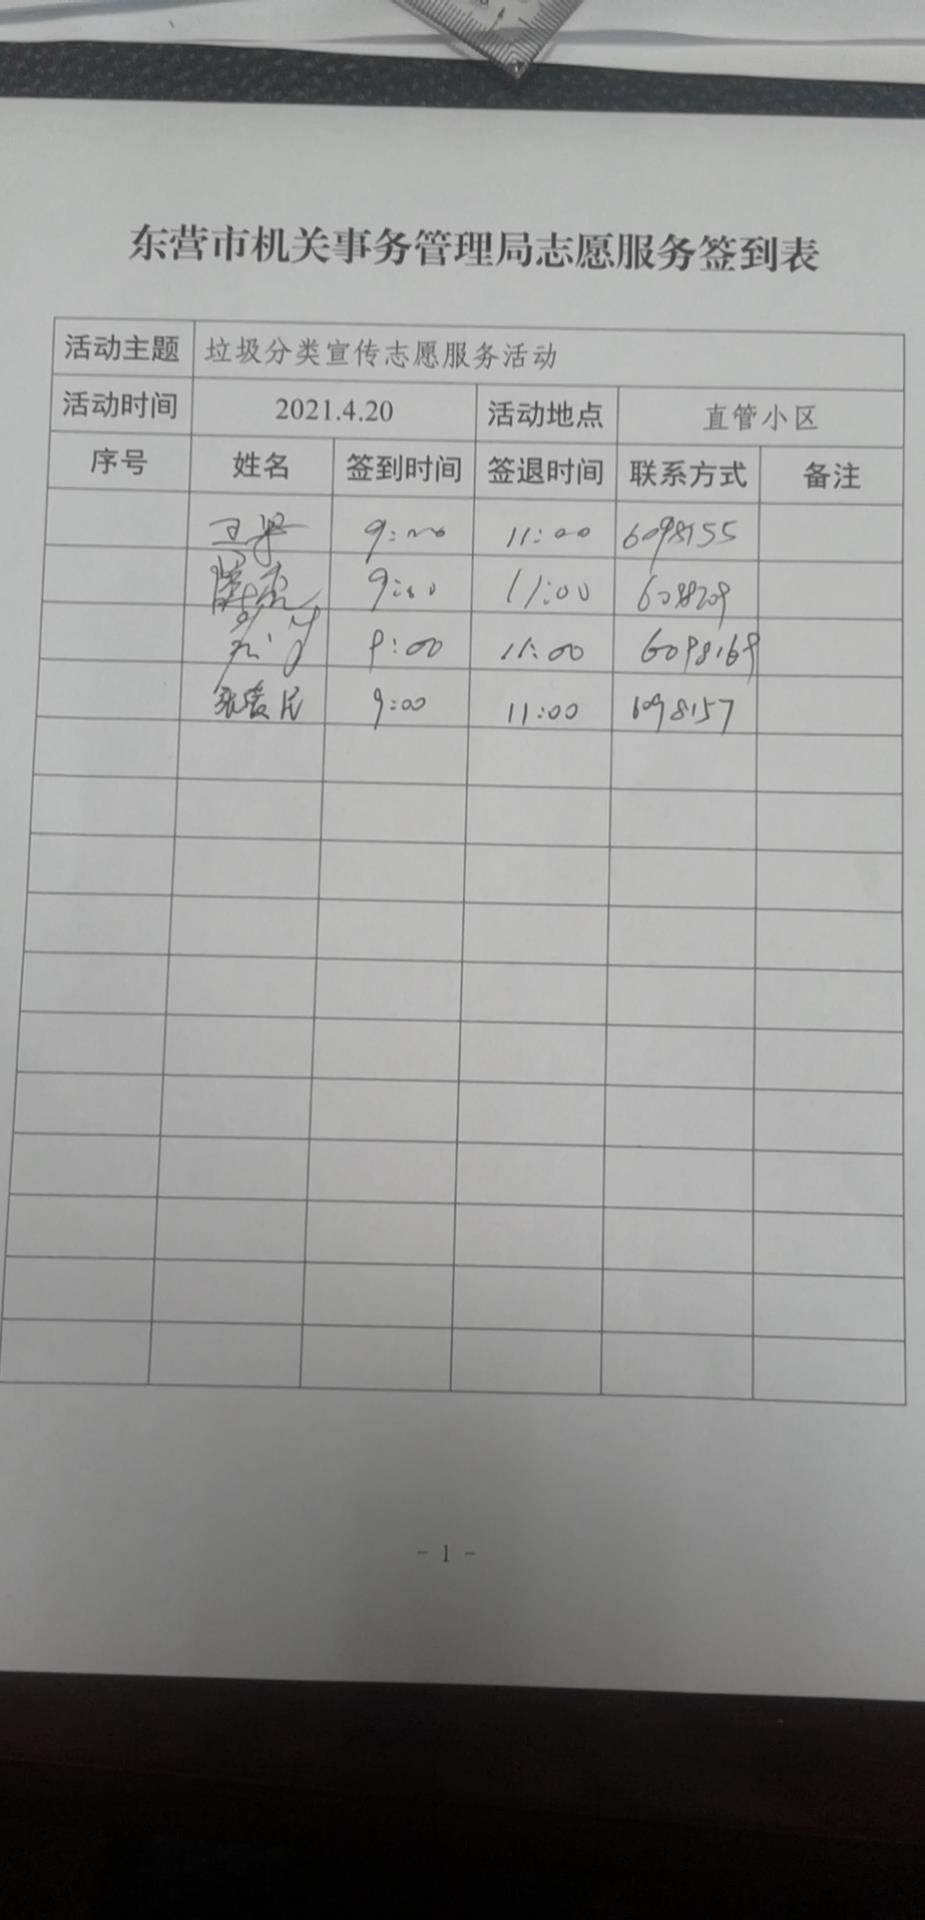 东营市机关事务管理局志愿服务签到表
活动主题 垃圾分类宣传志愿服务活动
活动时间 2021.4.20 活动地点 直管小区
序号 姓名 签到时间 签退时间 联系方式 备注
9:00 11:00 6098155
9:00 11:00 6098209
9:00 11:00 6098169
张爱民 9:00 11:00 6098157
- 1 -